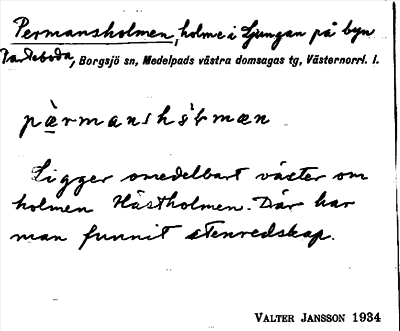 Permansholmen, holme i Ljungan på byn
Parteboda, Borgsjö sn, Medelpads västra domsagas tg, Västernorrl. l.
Ligger omedelbart väster om
holmen Hästholmen. Där har
man funnit stenredskap.
VALTER JANSSON 1934